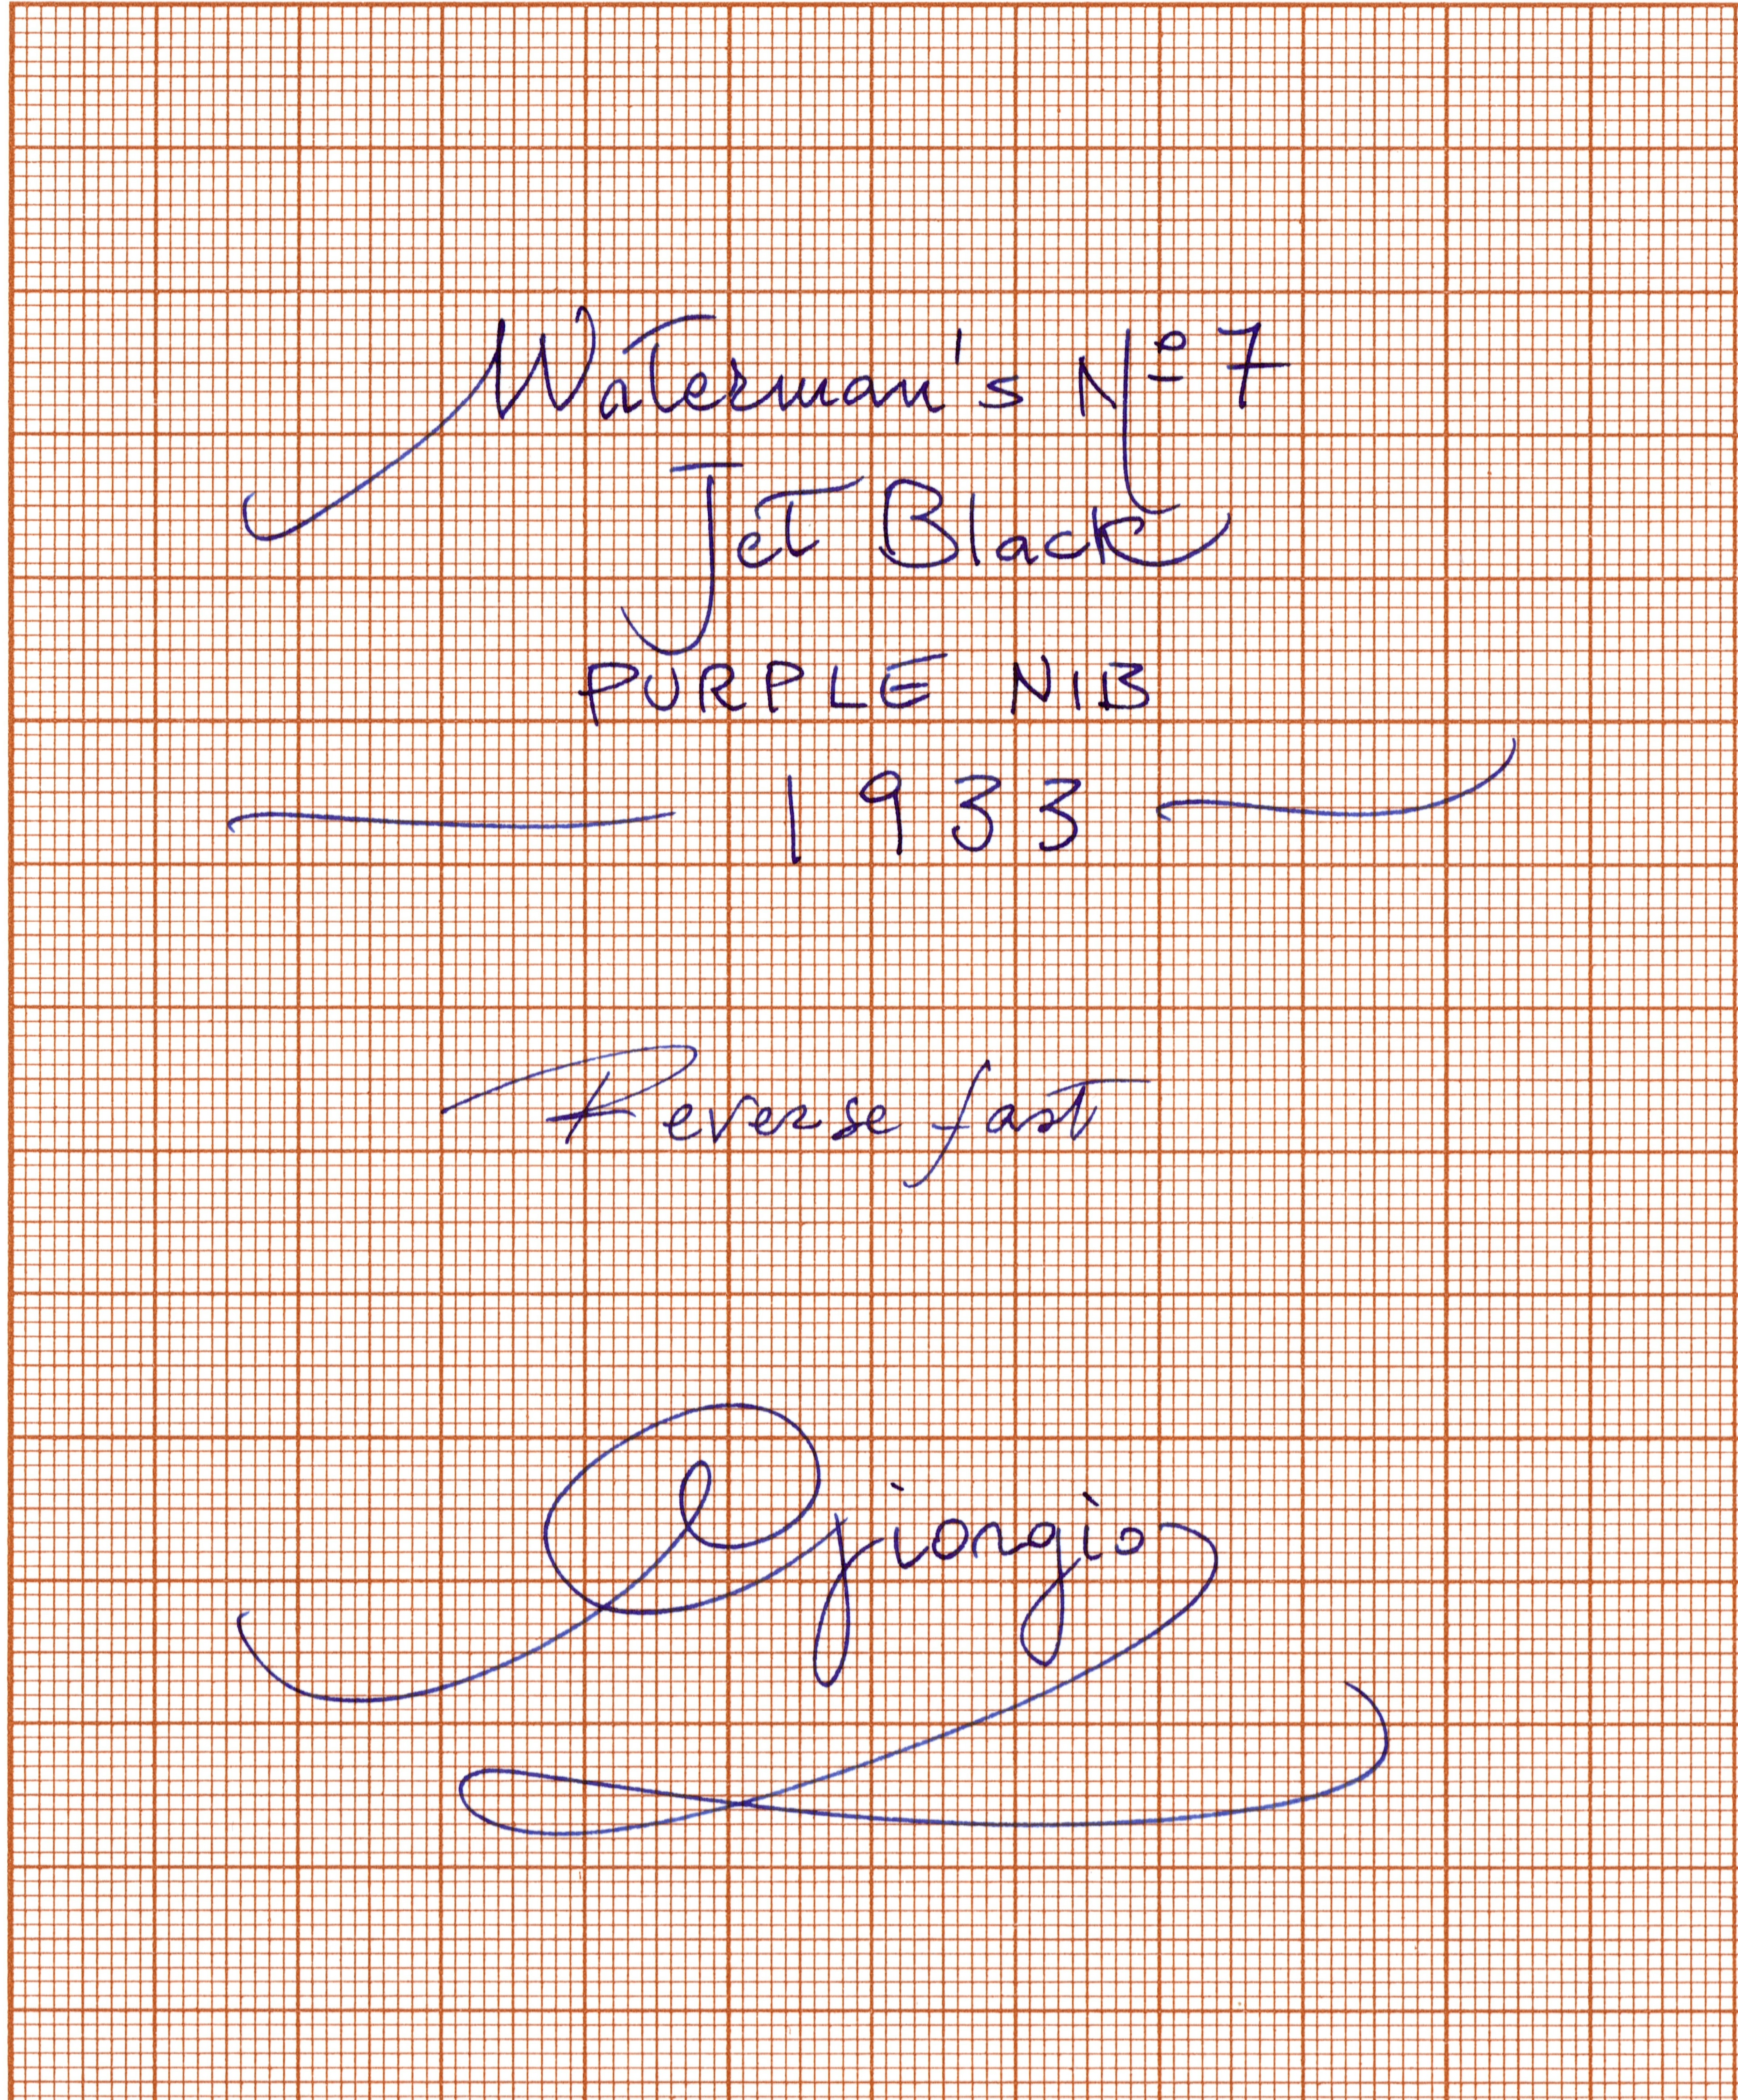 Waterman's Nº 7
Jet Black
PURPLE NIB
1933
Reverse fast
Giorgio